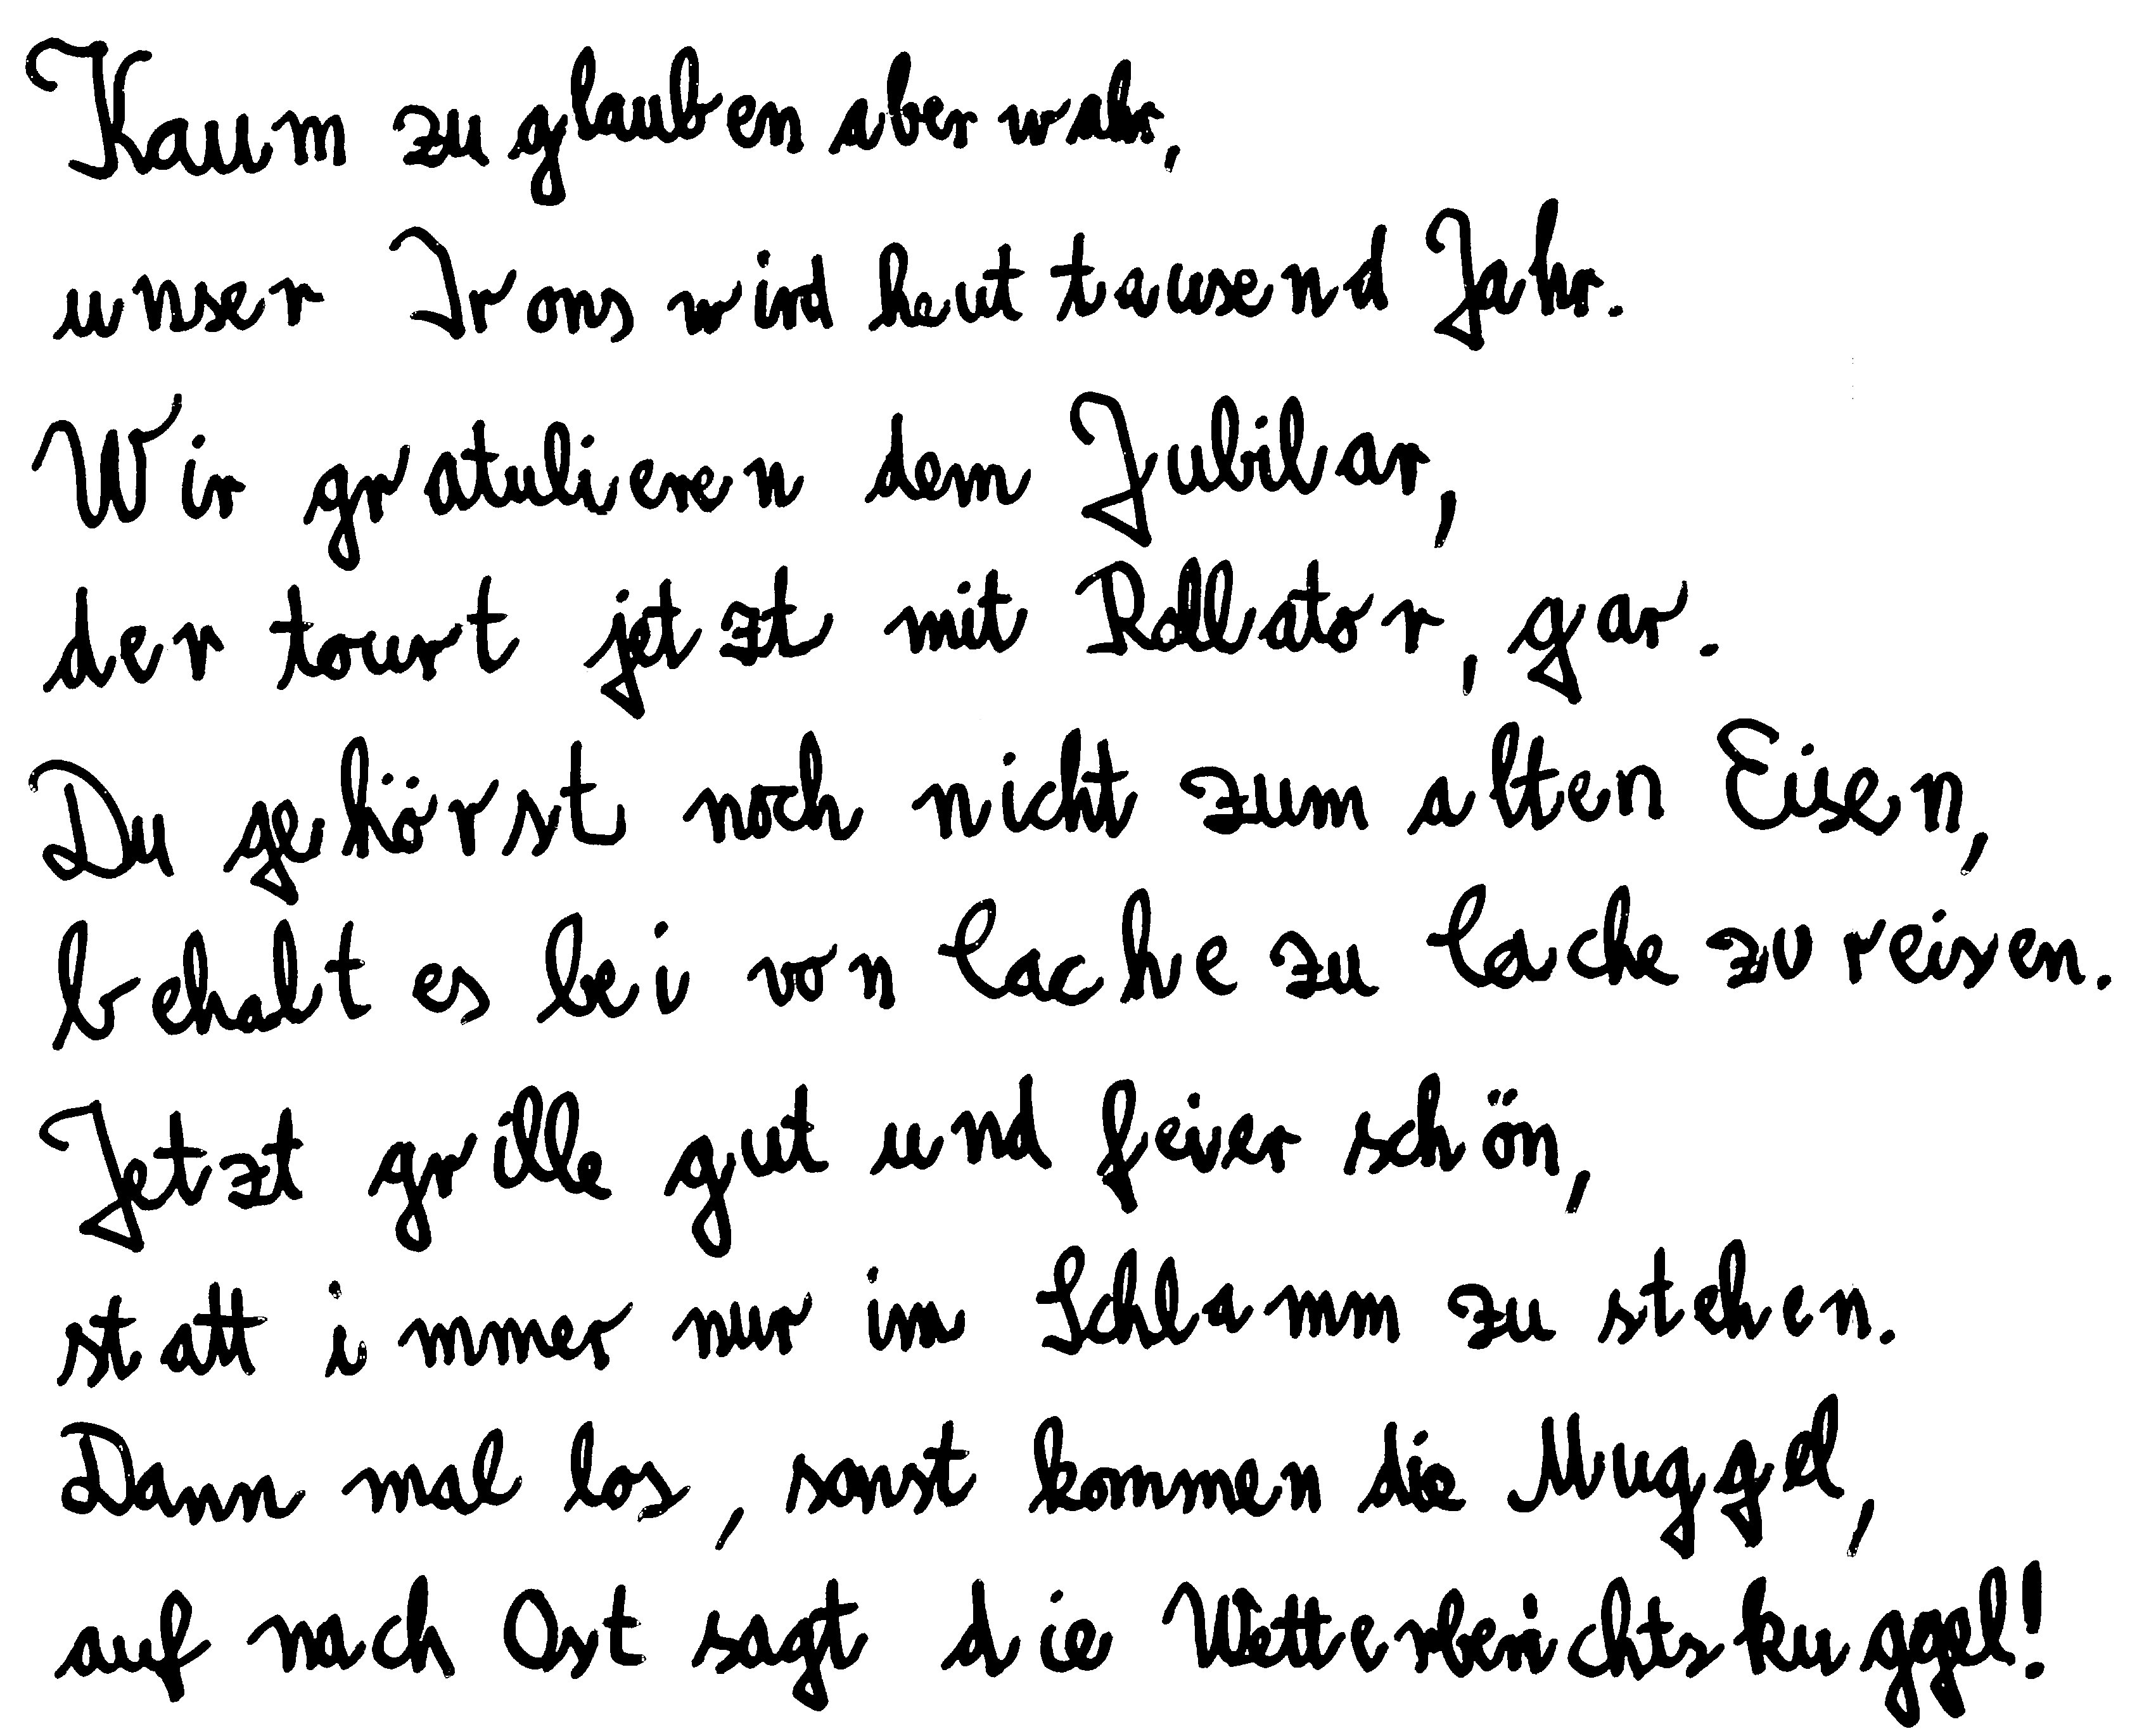 Kaum zu glauben aber wahr,
unser Irons wird heut tausend Jahr.
Wir gratulieren dem Jubilar,
der tourt jetzt mit Rollator, gar.
Du gehörst noch nicht zum alten Eisen,
behalt es bei von Cache zu Cache zu reisen.
Jetzt grille gut und feier schön,
statt immer nur im Schlamm zu stehen.
Dann mal los, sonst kommen die Muggel,
auf nach Ost sagt die Wetterberichtskuggel!